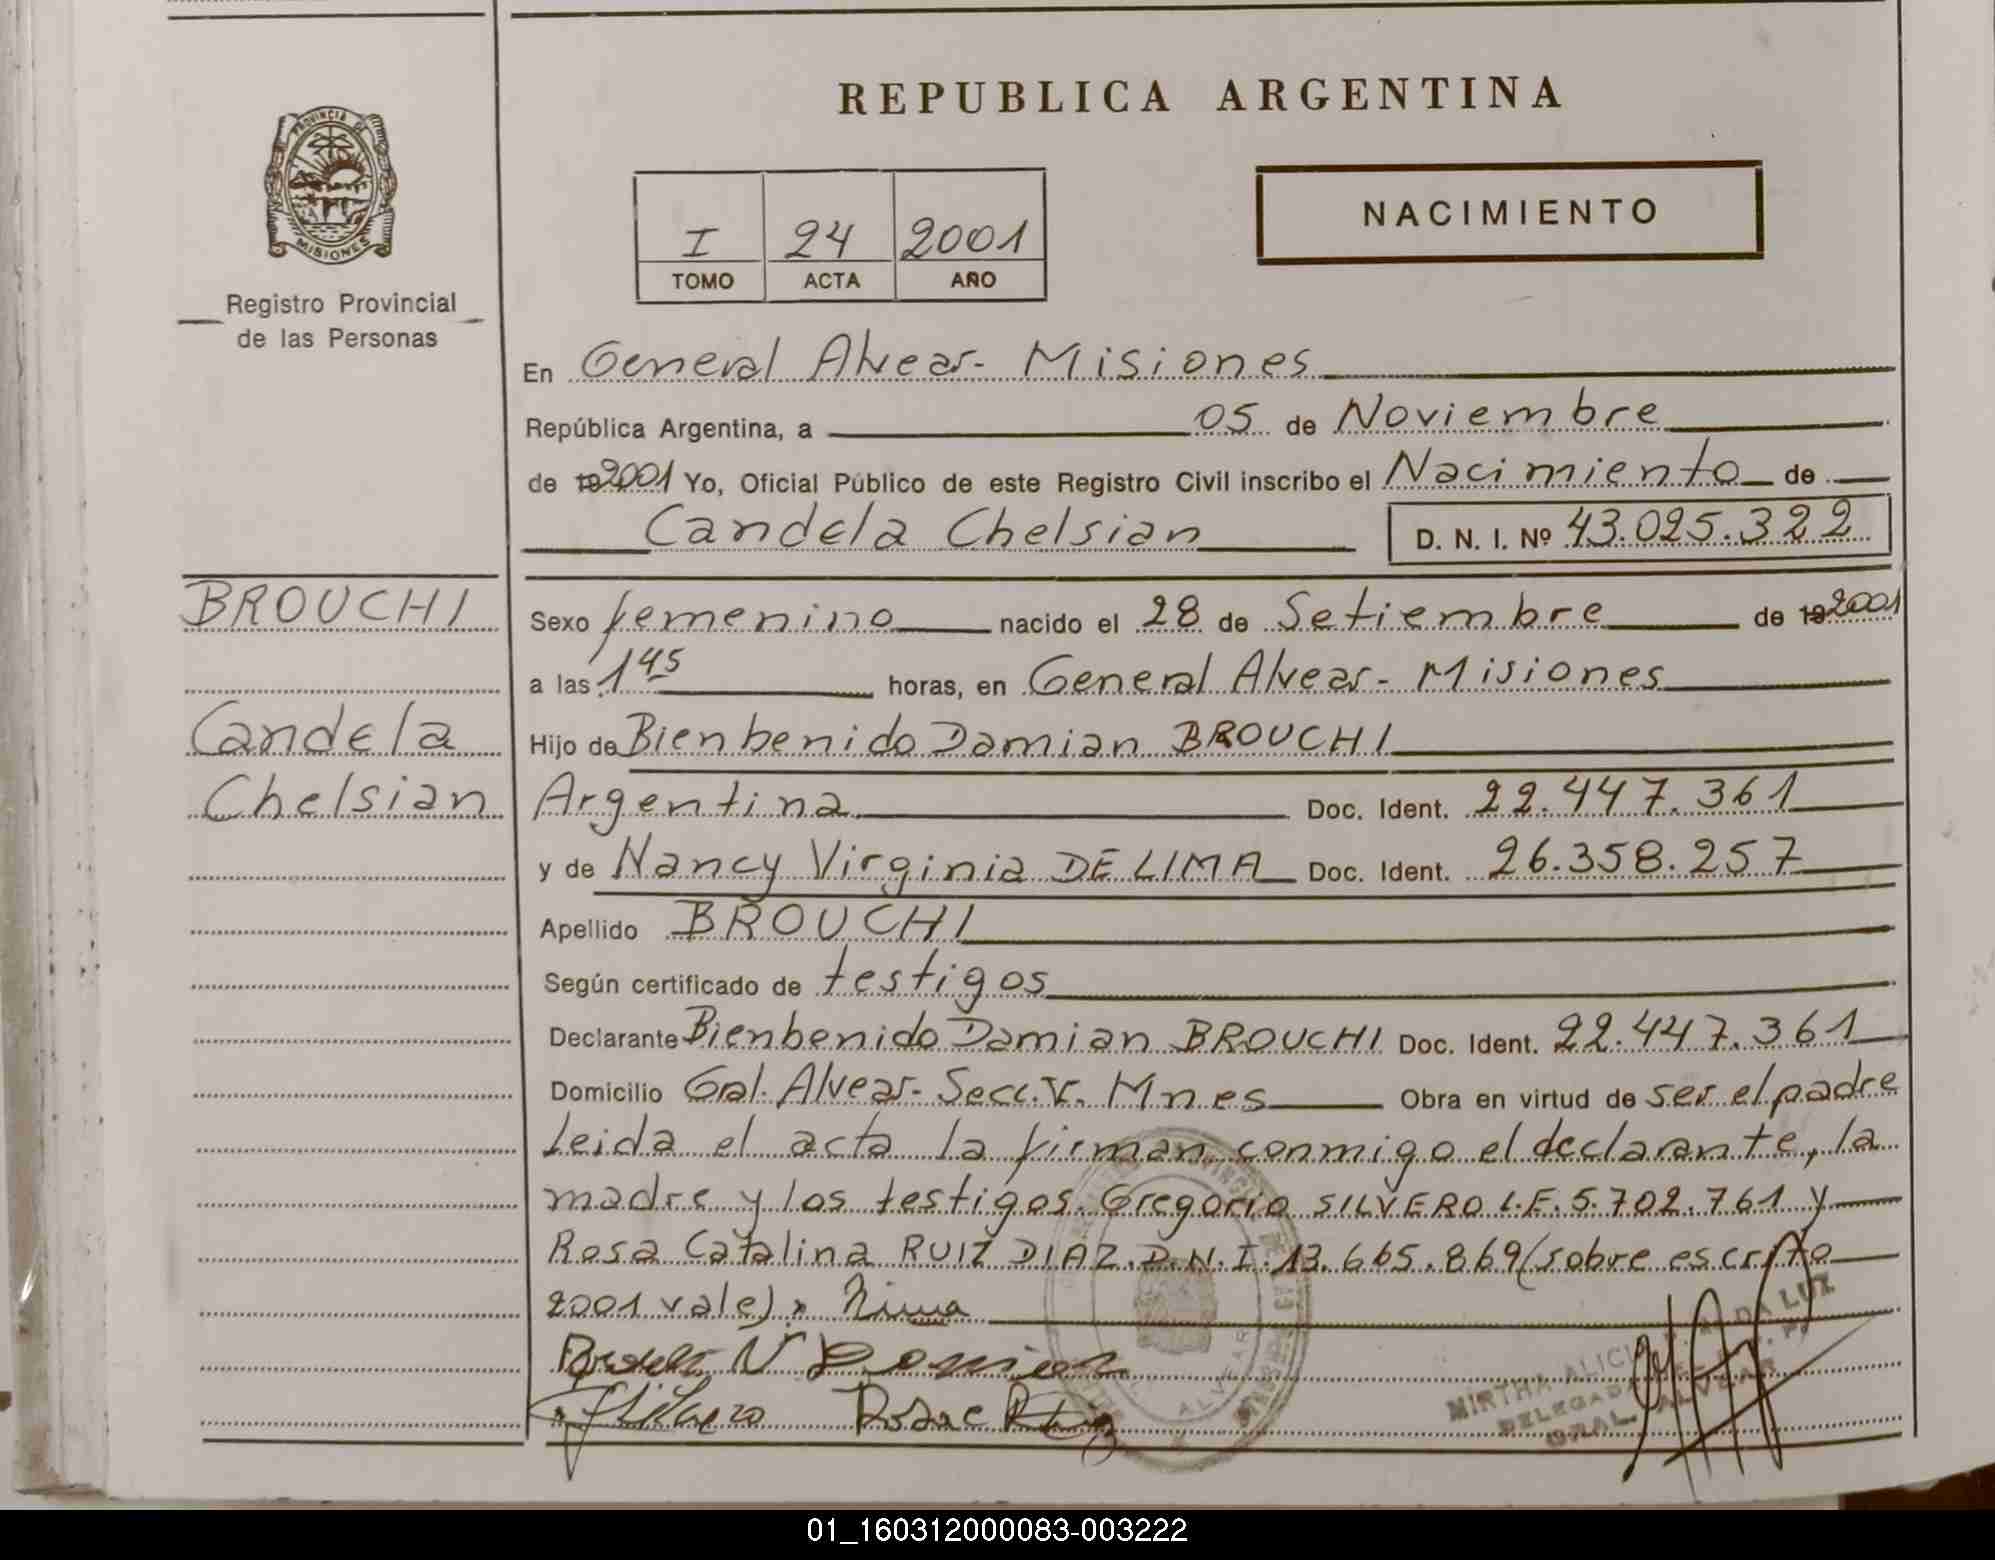 REPUBLICA ARGENTINA
PROVINCIA DE
MISIONES
Registro Provincial
de las Personas
I 24 2001
TOMO ACTA AÑO
NACIMIENTO
En General Alvear - Misiones
República Argentina, a 05 de Noviembre
de 19 2001 Yo, Oficial Público de este Registro Civil inscribo el Nacimiento de
Candela Chelsian D. N. I. Nº 43.025.322
BROUCHI
Candela
Chelsian
Sexo femenino nacido el 28 de Setiembre de 19 2001
a las 1 45 horas, en General Alvear - Misiones
Hijo de Bienbenido Damian BROUCHI
Argentina Doc. Ident. 22.447.361
y de Nancy Virginia DE LIMA Doc. Ident. 26.358.257
Apellido BROUCHI
Según certificado de testigos
Declarante Bienbenido Damian BROUCHI Doc. Ident. 22.447.361
Domicilio Gral. Alvear - Secc. V. Mnes Obra en virtud de ser el padre
Leida el acta la firman conmigo el declarante, la
madre y los testigos. Gregorio SILVERO L.E. 5.702.761 y
Rosa Catalina RUIZ DIAZ. D.N.I. 13.665.869 (sobre escrito
2001 vale)
MIRTHA ALICIA DA LUZ
DELEGADA
GRAL. ALVEAR
01_160312000083-003222